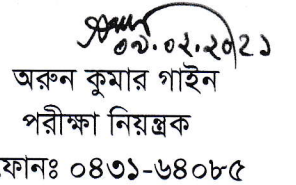 ০৭.০২.২০২১
অরুন কুমার গাইন
পরীক্ষা নিয়ন্ত্রক
ফোনঃ ০৪৩১-৬৪০৮৫